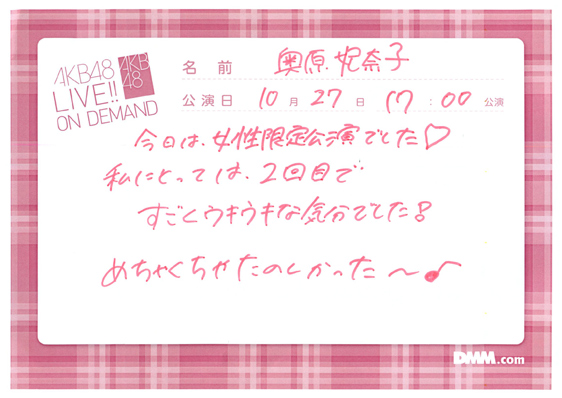 AKB48
LIVE!!
ON DEMAND
AKB
48
名 前 奥原妃奈子
公演日 10月27日 17:00 公演
今日は、女性限定公演でした♡
私にとっては、2回目で
すごくウキウキな気分でした!
めちゃくちゃたのしかった〜♪
DMM.com